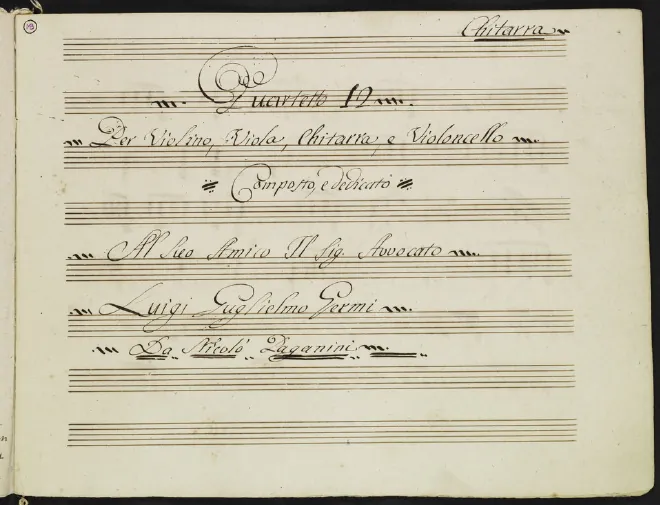 Chitarra
Quartetto 12
Per Violino, Viola, Chitarra, e Violoncello
Composto, e dedicato
Al Suo Amico Il Sig. Avvocato
Luigi Guglielmo Germi
Da Nicolò Paganini